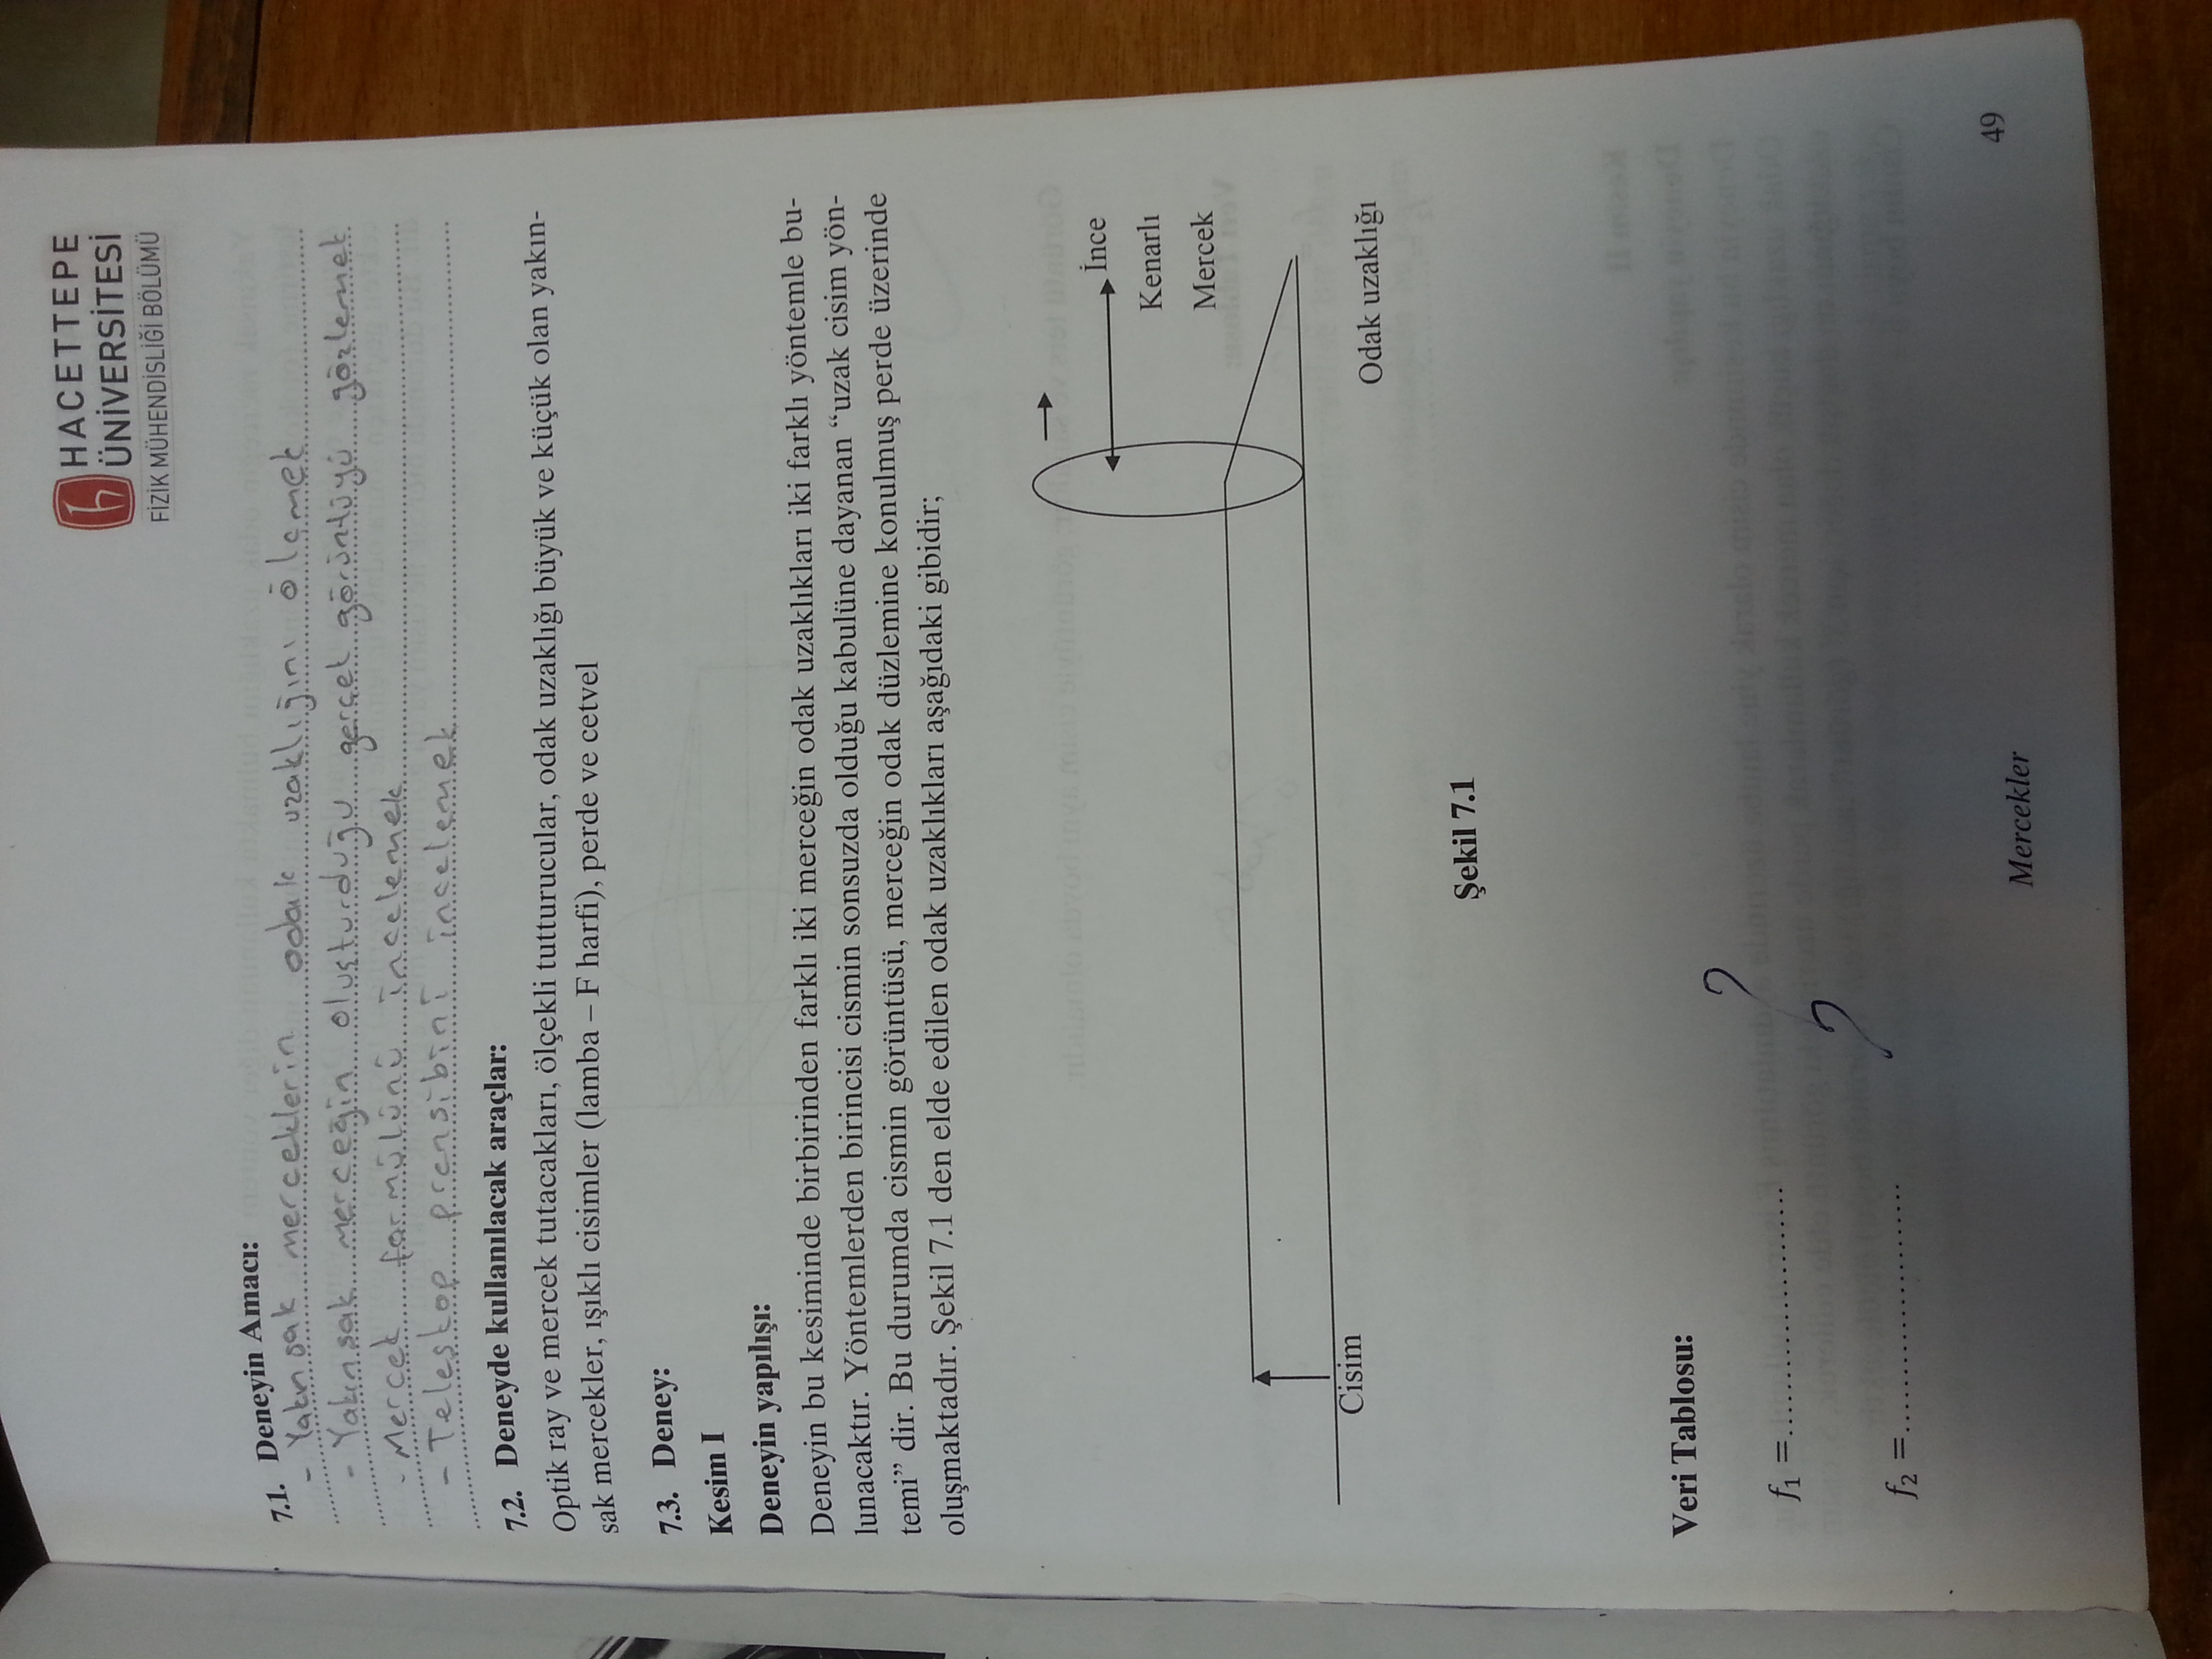 HACETTEPE
ÜNİVERSİTESİ
FİZİK MÜHENDİSLİĞİ BÖLÜMÜ
7.1. Deneyin Amacı:
- Yakınsak merceklerin odak uzaklığını ölçmek
- Yakınsak merceğin oluşturduğu gerçek görüntüyü gözlemek
- Mercek formülünü incelemek
- Teleskop prensibini incelemek
7.2. Deneyde kullanılacak araçlar:
Optik ray ve mercek tutacakları, ölçekli tutturucular, odak uzaklığı büyük ve küçük olan yakın-
sak mercekler, ışıklı cisimler (lamba – F harfi), perde ve cetvel
7.3. Deney:
Kesim I
Deneyin yapılışı:
Deneyin bu kesiminde birbirinden farklı iki merceğin odak uzaklıkları iki farklı yöntemle bu-
lunacaktır. Yöntemlerden birincisi cismin sonsuzda olduğu kabulüne dayanan “uzak cisim yön-
temi” dir. Bu durumda cismin görüntüsü, merceğin odak düzlemine konulmuş perde üzerinde
oluşmaktadır. Şekil 7.1 den elde edilen odak uzaklıkları aşağıdaki gibidir;
İnce
Kenarlı
Mercek
Cisim
Odak uzaklığı
Şekil 7.1
Veri Tablosu:
?
f₁ =......................
?
f₂ =......................
Mercekler
49